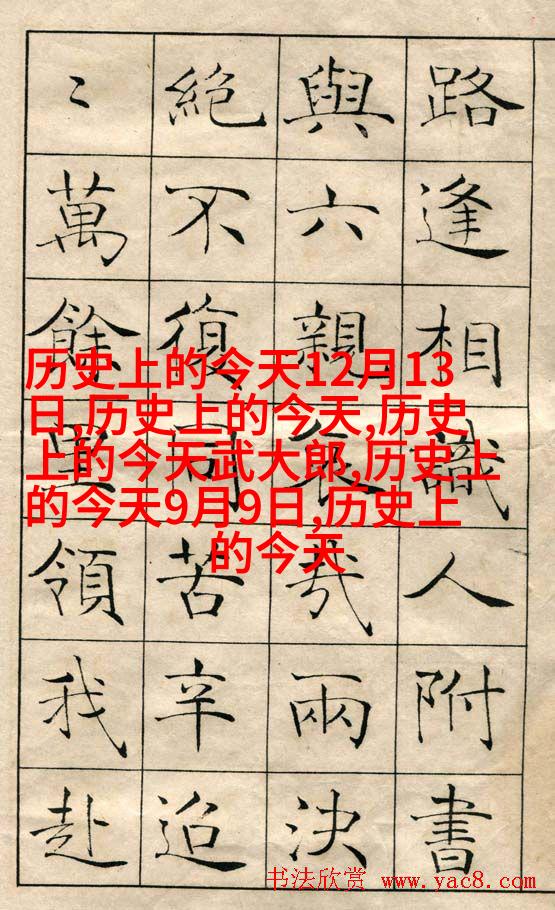 路逢相識人附書
與六親哀哉兩決
絕不復同苦辛迢
〻萬餘里領我赴
历史上的今天12月13
日,历史上的今天,历史
上的今天武大郎,历史上
的今天9月9日,历史上
的今天
书法欣赏 www.yac8.com